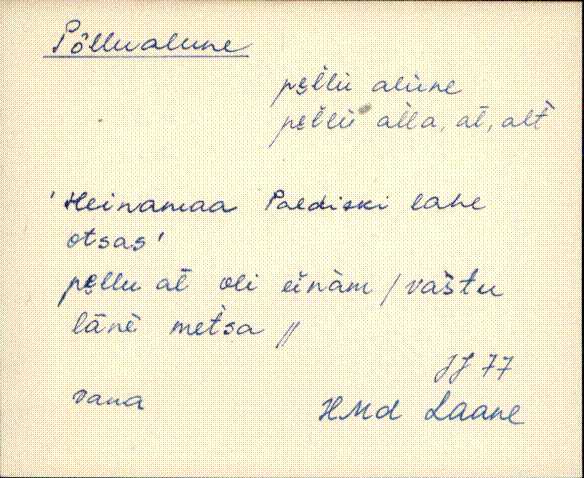 Põllualune
pe̮l̀lù alùne
pe̮l̀lù al̀la, al̀, al̀t
'Heinamaa Paldiski lahe
otsas'
pe̮llu al̀ oli eìnàm / vas̀tu
länè metsa //
JJ 77
vana HMd Laane